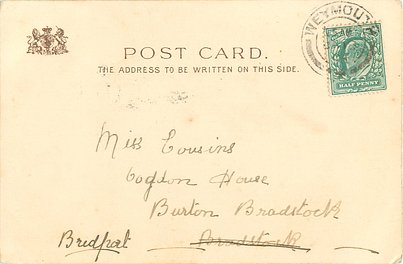 POST CARD.
THE ADDRESS TO BE WRITTEN ON THIS SIDE.
WEYMOUTH
HALF PENNY
Miss Cousins
Cogdon House
Burton Bradstock
Bridport Bradstock